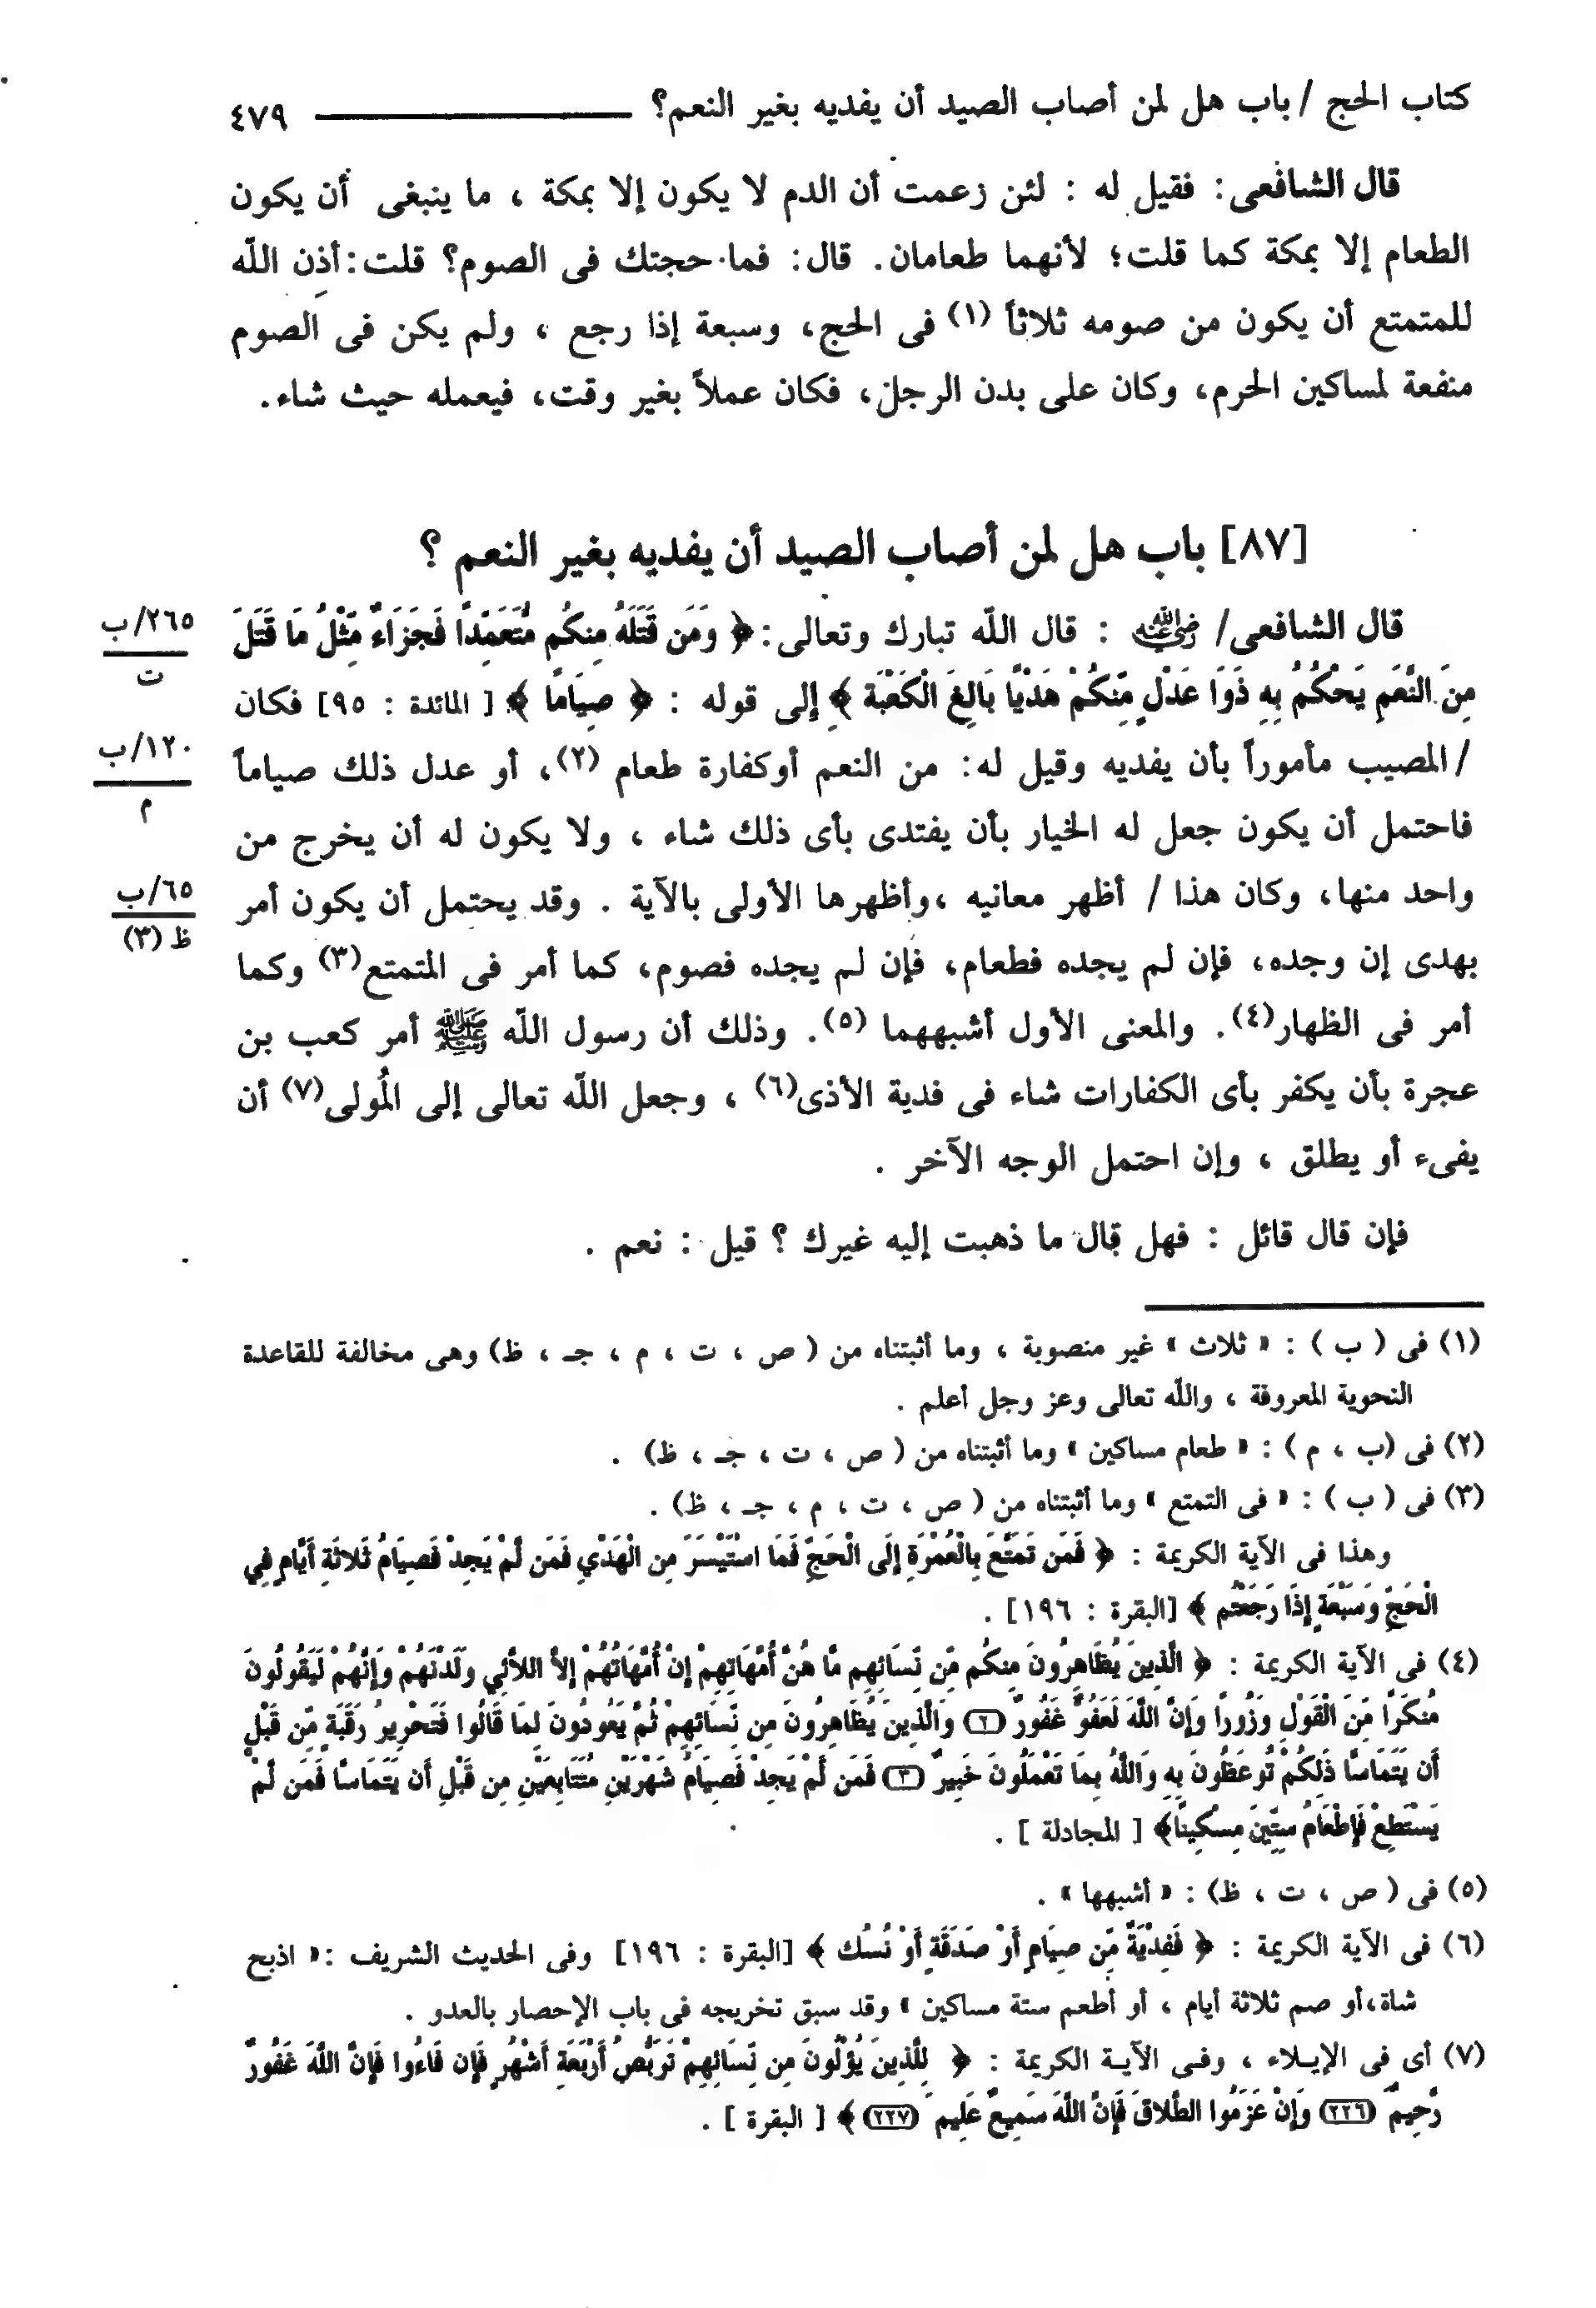 كتاب الحج / باب هل لمن أصاب الصيد أن يفديه بغير النعم؟ ٤٧٩
قال الشافعى: فقيل له : لئن زعمت أن الدم لا يكون إلا بمكة ، ما ينبغى أن يكون
الطعام إلا بمكة كما قلت؛ لأنهما طعامان. قال: فما حجتك فى الصوم؟ قلت: أذِن الله
للمتمتع أن يكون من صومه ثلاثاً (١) فى الحج، وسبعة إذا رجع ، ولم يكن فى الصوم
منفعة لمساكين الحرم، وكان على بدن الرجل، فكان عملاً بغير وقت، فيعمله حيث شاء.
[٨٧] باب هل لمن أصاب الصيد أن يفديه بغير النعم ؟
قال الشافعى/ رضي الله عنه : قال الله تبارك وتعالى: ﴿ وَمَن قَتَلَهُ مِنكُم مُّتَعَمِّدًا فَجَزَاءٌ مِّثْلُ مَا قَتَلَ
٢٦٥/ب
ت
مِنَ النَّعَمِ يَحْكُمُ بِهِ ذَوَا عَدْلٍ مِّنكُمْ هَدْيًا بَالِغَ الْكَعْبَةِ ﴾ إلى قوله : ﴿ صِيَامًا ﴾ [ المائدة : ٩٥] فكان
/المصيب مأموراً بأن يفديه وقيل له: من النعم أوكفارة طعام (٢)، أو عدل ذلك صياماً
١٢٠/ب
م
فاحتمل أن يكون جعل له الخيار بأن يفتدى بأى ذلك شاء ، ولا يكون له أن يخرج من
واحد منها، وكان هذا / أظهر معانيه ،وأظهرها الأولى بالآية . وقد يحتمل أن يكون أمر
٦٥/ب
ظ (٣)
بهدى إن وجده، فإن لم يجده فطعام، فإن لم يجده فصوم، كما أمر فى المتمتع(٣) وكما
أمر فى الظهار(٤). والمعنى الأول أشبههما (٥). وذلك أن رسول الله ﷺ أمر كعب بن
عجرة بأن يكفر بأى الكفارات شاء فى فدية الأذى(٦) ، وجعل الله تعالى إلى المُولى(٧) أن
يفىء أو يطلق ، وإن احتمل الوجه الآخر .
فإن قال قائل : فهل قال ما ذهبت إليه غيرك ؟ قيل : نعم .
(١) فى ( ب ) : « ثلاث » غير منصوبة ، وما أثبتناه من ( ص ، ت ، م ، جـ ، ظ) وهى مخالفة للقاعدة
النحوية المعروفة ، والله تعالى وعز وجل أعلم .
(٢) فى (ب ، م ) : « طعام مساكين » وما أثبتناه من ( ص ، ت ، جـ ، ظ) .
(٣) فى ( ب ) : « فى التمتع » وما أثبتناه من ( ص ، ت ، م ، جـ ، ظ) .
وهذا فى الآية الكريمة : ﴿ فَمَن تَمَتَّعَ بِالْعُمْرَةِ إِلَى الْحَجِّ فَمَا اسْتَيْسَرَ مِنَ الْهَدْيِ فَمَن لَّمْ يَجِدْ فَصِيَامُ ثَلاثَةِ أَيَّامٍ فِي
الْحَجِّ وَسَبْعَةٍ إِذَا رَجَعْتُم ﴾ [البقرة : ١٩٦] .
(٤) فى الآية الكريمة : ﴿ الَّذِينَ يُظَاهِرُونَ مِنكُم مِّن نِّسَائِهِم مَّا هُنَّ أُمَّهَاتِهِمْ إِنْ أُمَّهَاتُهُمْ إِلاَّ اللاَّئِي وَلَدْنَهُمْ وَإِنَّهُمْ لَيَقُولُونَ
مُنكَرًا مِّنَ الْقَوْلِ وَزُورًا وَإِنَّ اللَّهَ لَعَفُوٌّ غَفُورٌ (٢) وَالَّذِينَ يُظَاهِرُونَ مِن نِّسَائِهِمْ ثُمَّ يَعُودُونَ لِمَا قَالُوا فَتَحْرِيرُ رَقَبَةٍ مِّن قَبْلِ
أَن يَتَمَاسَّا ذَلِكُمْ تُوعَظُونَ بِهِ وَاللَّهُ بِمَا تَعْمَلُونَ خَبِيرٌ (٣) فَمَن لَّمْ يَجِدْ فَصِيَامُ شَهْرَيْنِ مُتَتَابِعَيْنِ مِن قَبْلِ أَن يَتَمَاسَّا فَمَن لَّمْ
يَسْتَطِعْ فَإِطْعَامُ سِتِّينَ مِسْكِينًا﴾ [ المجادلة ] .
(٥) فى ( ص ، ت ، ظ) : « أشبهها » .
(٦) فى الآية الكريمة : ﴿ فَفِدْيَةٌ مِّن صِيَامٍ أَوْ صَدَقَةٍ أَوْ نُسُك ﴾ [البقرة : ١٩٦] وفى الحديث الشريف :« اذبح
شاة،أو صم ثلاثة أيام ، أو أطعم ستة مساكين » وقد سبق تخريجه فى باب الإحصار بالعدو .
(٧) أى فى الإيـلاء ، وفـى الآيـة الكريمة : ﴿ لِلَّذِينَ يُؤْلُونَ مِن نِّسَائِهِمْ تَرَبُّصُ أَرْبَعَةِ أَشْهُرٍ فَإِن فَاءُوا فَإِنَّ اللَّهَ غَفُورٌ
رَّحِيمٌ (٢٢٦) وَإِنْ عَزَمُوا الطَّلاقَ فَإِنَّ اللَّهَ سَمِيعٌ عَلِيمٌ (٢٢٧) ﴾ [ البقرة ] .